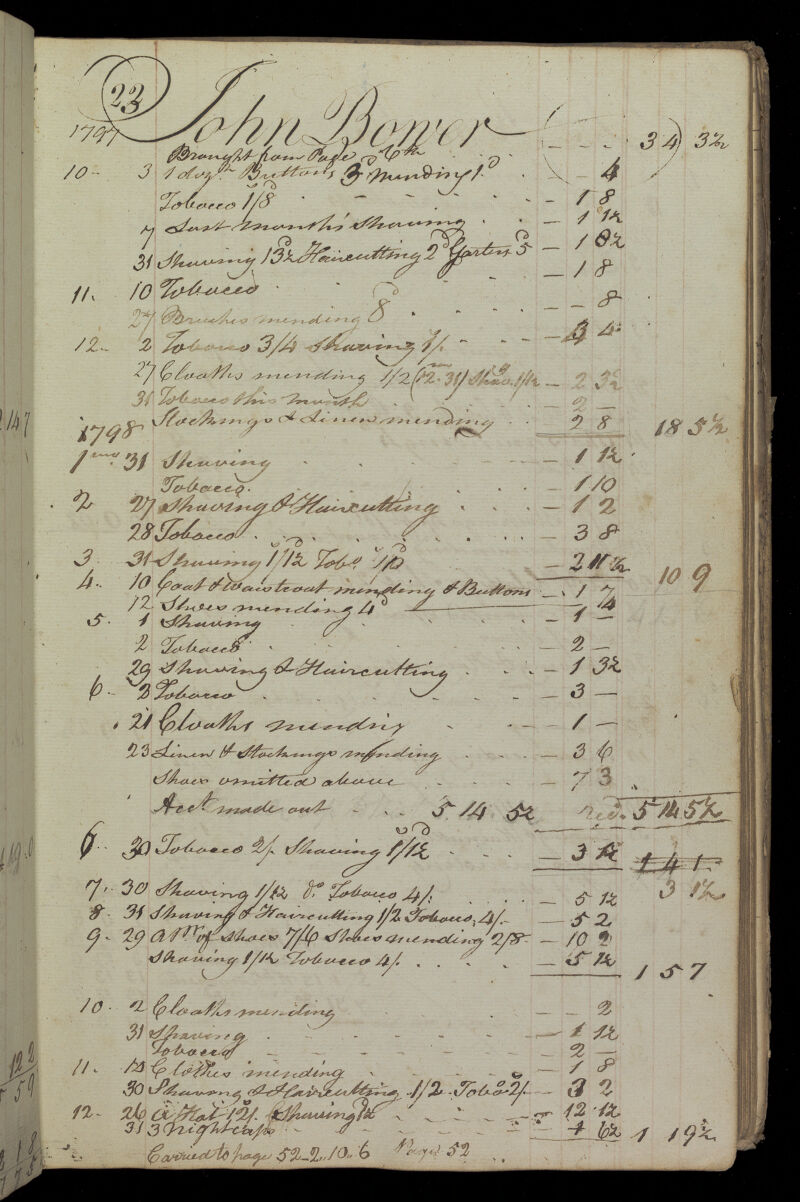 23
1797 John Bower - - - 3 4 3½
Brought from Page 6th
10 - 3 1 dozn Buttons 3d Mending 1d - - 4
Tobacco 1/8 - 1 8
7 Last month's Shaving - 1 1½
31 Shaving 13½ Haircutting 2d Garters 5d - 1 8½
11. 10 Tobacco - 1 8
27 Brushes mending 8d - - 8
12. 2 Tobacco 3/4 Shaving 1/. 4 4
27 Cloaths mending 1/2 (12mo 31) Shavg 1/1½ - 2 3½
31 Tobacco this month - 2 -
Stockings & Linen mending 2 8 18 5½
1798
1mo 31 Shaving - 1 1½
Tobacco - 1 10
2 27 Shaving & Haircutting - 1 2
28 Tobacco - 3 8
3. 31 Shaving 1/1½ Tobo 1/10 - 2 11½ 10 9
4. 10 Coat & Waistcoat mending & Buttons - 1 7
12 Shoes mending 4d 4
5. 1 Shaving - 1 -
2 Tobacco - 2 -
29 Shaving & Haircutting - 1 3½
6 - 2 Tobacco - 3 -
21 Cloaths mending - 1 -
23 Linen & Stockings mending - 3 6
Shoes omitted above - 7 3
Acct made out 5 14 5½ recd. 5 14 5½
6 - 30 Tobacco 2/. Shaving 1/1½ - 3 1½ 1 4 1
3 1½
7. 30 Shaving 1/1½ do Tobacco 4/. - 5 1½
8. 31 Shaving & Haircutting 1/2 Tobacco 4/. - 5 2
9 - 29 A Pr of Shoes 7/6 Shoes mending 2/8 - 10 2
Shaving 1/1½ Tobacco 4/. - 5 1½ 1 5 7
10 - 2 Cloaths mending - - 2
31 Shaving - 1 1½
Tobacco - 2 -
11. 12 Clothes mending - 1 8
30 Shaving & Haircutting 1/2 Tobo 2/. - 3 2
12 - 26 A Hat 12/. Shaving 1½ 12 1½
31 3 Nightcaps - 1 6½ 1 19½
Carried to page 52 - 2 .. 10 .. 6 Page 52
2 147
19.0
12 2
5 9